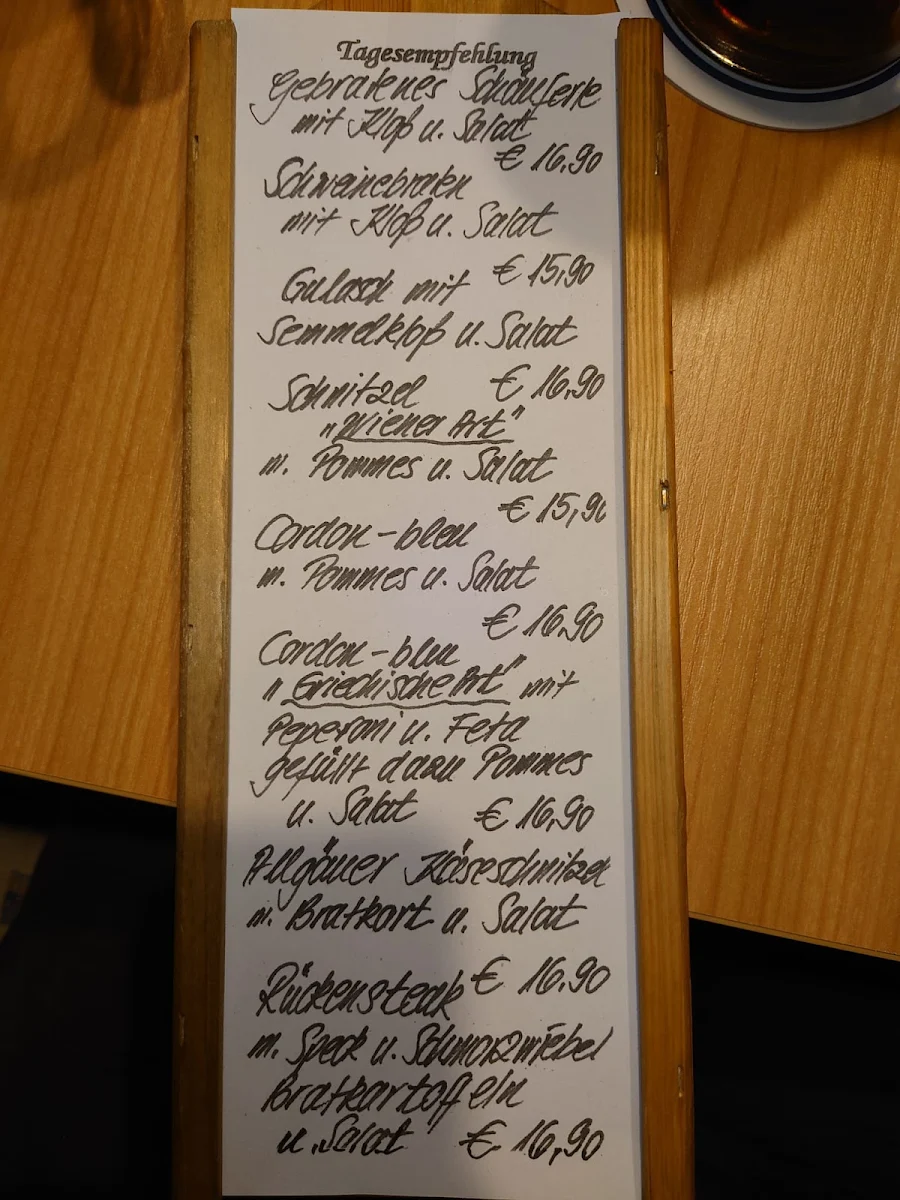 Tagesempfehlung
Gebratenes Schäuferle
mit Kloß u. Salat
€ 16,90
Schweinebraten
mit Kloß u. Salat
€ 15,90
Gulasch mit
Semmelkloß u. Salat
€ 16,90
Schnitzel
"Wiener Art"
m. Pommes u. Salat
€ 15,90
Cordon-bleu
m. Pommes u. Salat
€ 16,90
Cordon-bleu
"Griechische Art" mit
Peperoni u. Feta
gefüllt dazu Pommes
u. Salat € 16,90
Allgäuer Käseschnitzel
m. Bratkart u. Salat
€ 16.90
Rückensteak
m. Speck u. Schmorzwiebel
Bratkartoffeln
u. Salat € 16,90